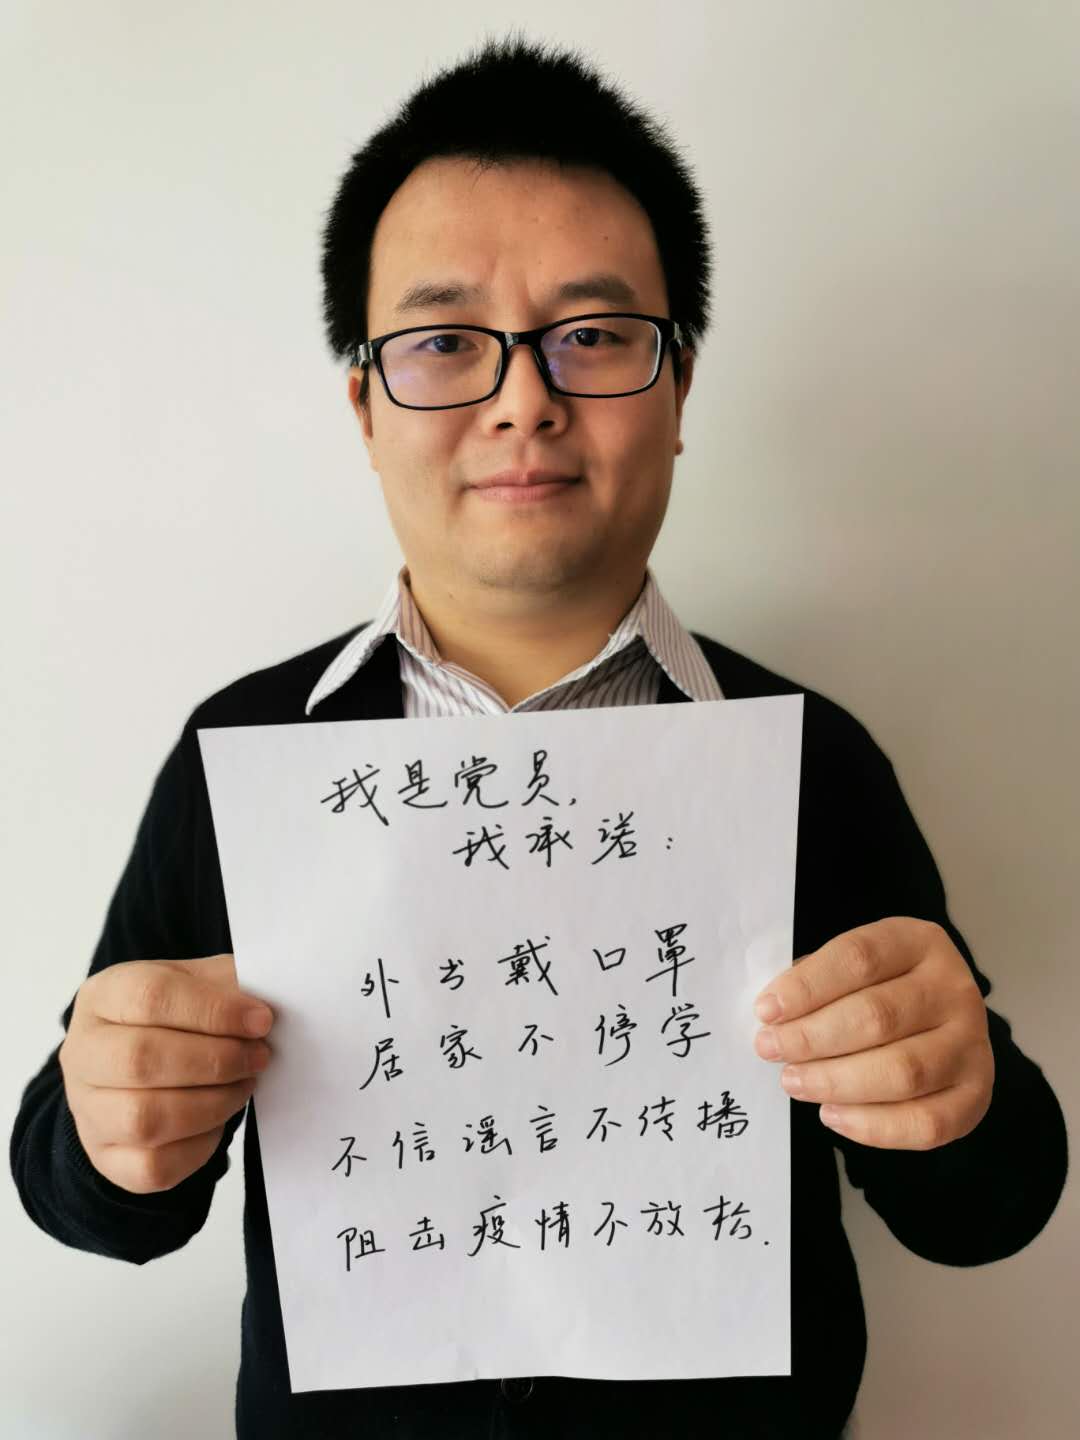 我是党员,
我承诺:
外出戴口罩
居家不停学
不信谣言不传播
阻击疫情不放松.